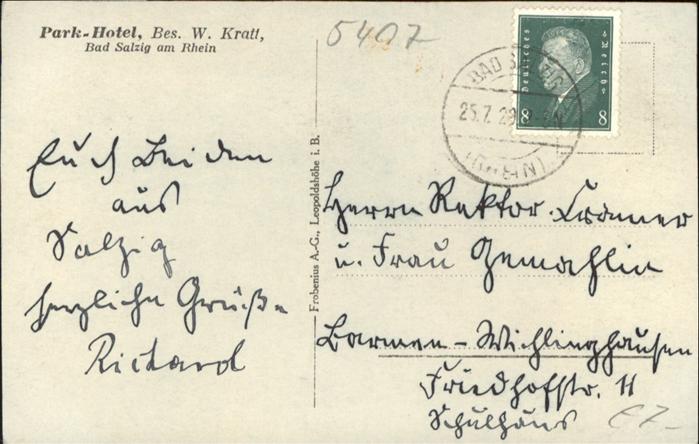 Park-Hotel, Bes. W. Kratt,
Bad Salzig am Rhein
5407
Deutsches Reich
8 8
BAD SALZIG
25.7.29
(RHEIN)
Euch Beiden
aus
Salzig
herzliche Grüße
Richard
Frobenius A.-G., Leopoldshöhe i. B.
Herrn Rektor Cramer
u. Frau Gemahlin
Barmen - Wichlinghausen
Friedhofstr. 11
Schulhaus